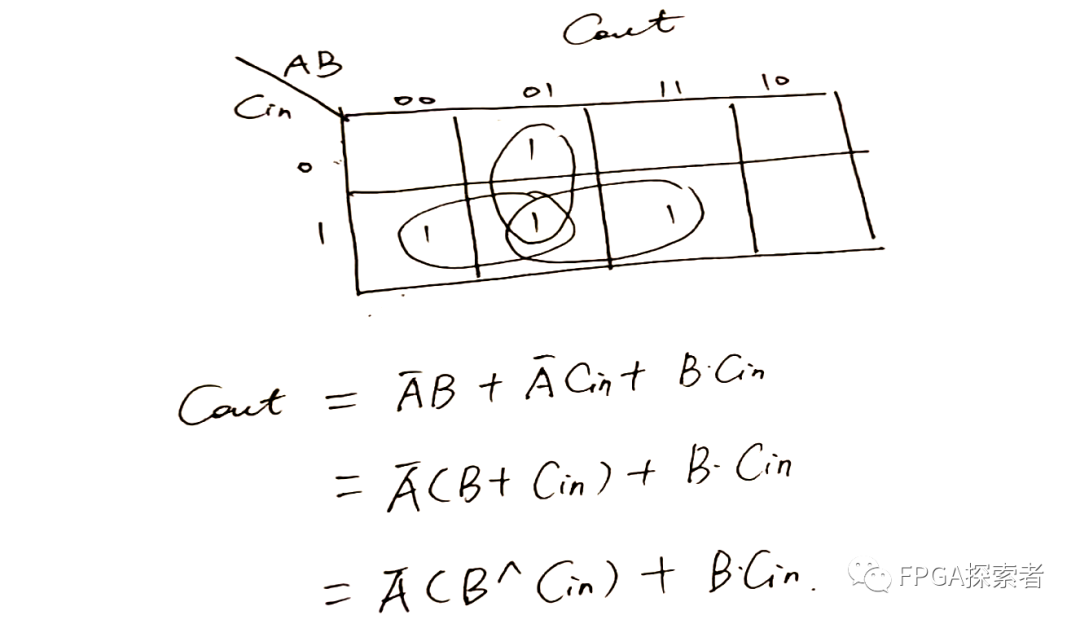 Cout
AB
Cin
00 01 11 10
0 1
1 1 1 1
Cout = A̅B + A̅Cin + B·Cin
= A̅(B + Cin) + B·Cin
= A̅(B ^ Cin) + B·Cin.
FPGA探索者